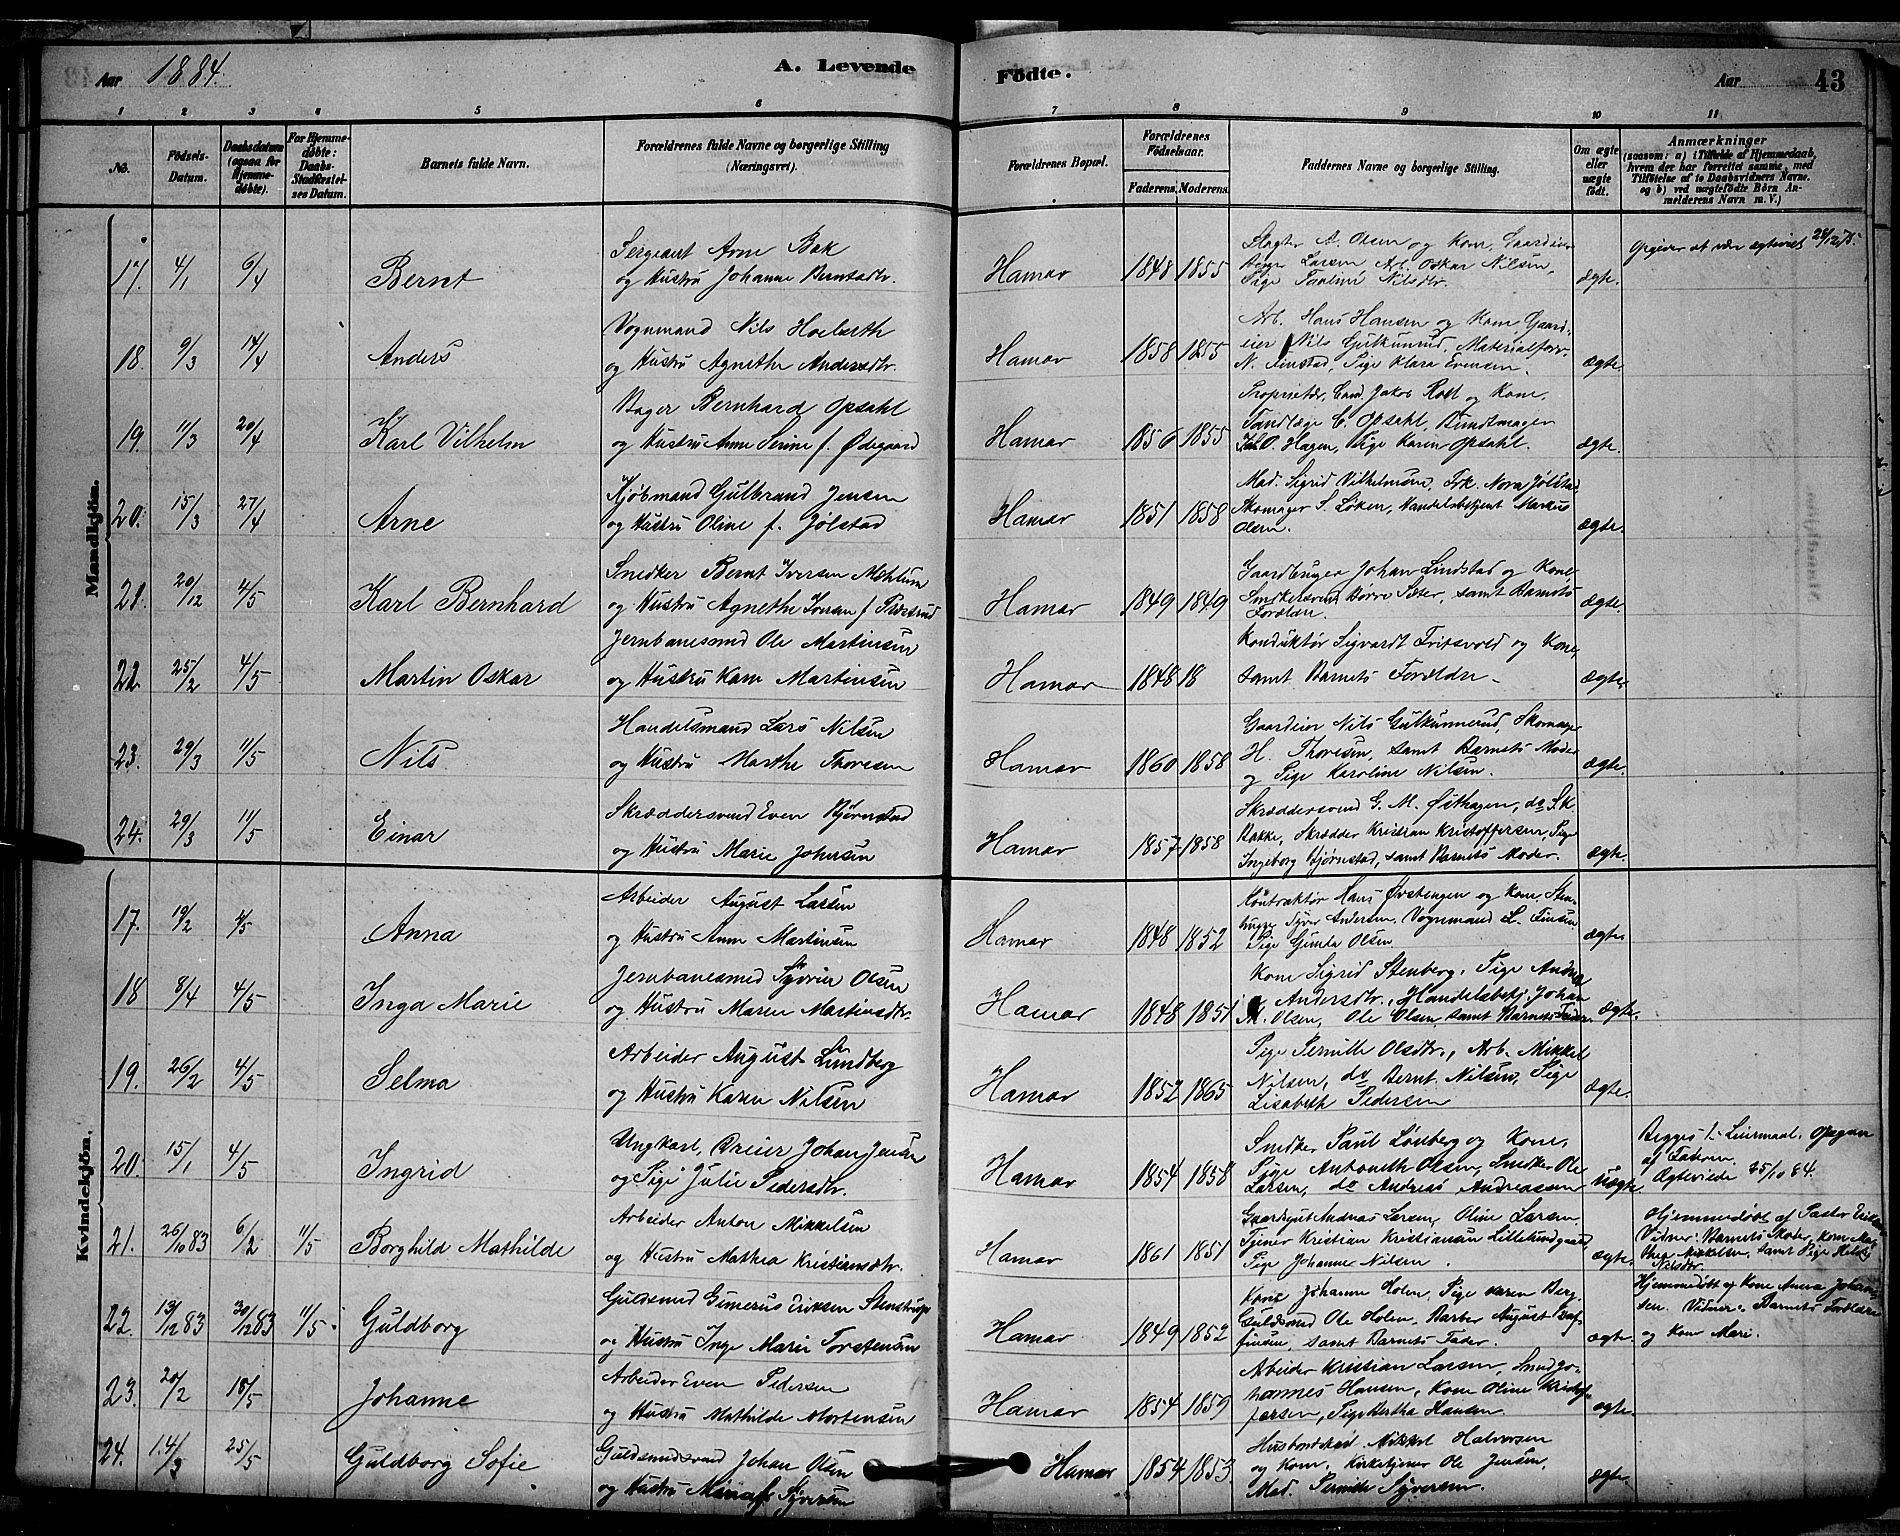 Aar 1884.
A. Levende Födte.
Aar 43
1 2 3 4 5 6 7 8 9 10 11
No.
Födsels-Datum.
Daabsdatum (ogsaa for Hjemmedöbte).
For Hjemmedöbte: Daabs-Stadfæstelses Datum.
Barnets fulde Navn.
Forældrenes fulde Navne og borgerlige Stilling
(Næringsvei).
Forældrenes Bopæl.
Forældrenes Födselsaar.
Faderens. Moderens.
Faddernes Navne og borgerlige Stilling.
Om ægte eller uægte födt.
Anmærkninger
(saasom: a) i Tilfælde af Hjemmedaab, hvem der har forrettet samme, med Tilföielse af to Daabsvidners Navne, og b) ved uægtefödte Börn Anmelderens Navn m. V.)
Mandkjön.
17. 4/1 6/4 Bernt
Sergeant Arne Bak
og Hustru Johanne Berntsdtr.
Hamar 1848 1855
Slagter A. Olsen og Kone, Gaardeier
Larsen, Arb. Oskar Nilsen,
Pige Pauline Nilsdtr.
ægte.
Opgiver at være ægteviet 28/12 75.
18. 9/3 14/4 Anders
Vognmand Nils Hoelseth
og Hustru Agnethe Andersdtr.
Hamar 1858 1855
Arb. Hans Hansen og Kone, Gaard-
eier Nils Gulkunrud, Materialforv.
N. Finstad, Pige Klara Evensen.
ægte.
19. 11/3 20/4 Karl Vilhelm
Bager Bernhard Opsahl
og Hustru Anne Serine f. Ødegaard
Hamar 1856 1855
Proprietær, Cand. Jakob Roll og Kone,
Tandlæge C. Opsahl, Bundtmager
O. Hagen, Pige Karen Opsahl.
ægte.
20. 15/3 27/4 Arne
Kjøbmand Gulbrand Jensen
og Hustru Oline f. Jølstad
Hamar 1851 1858
Mad. Sigrid Vilhelmsen, Frk. Nora Jølstad,
Skomager S. Løken, Handelsbetjent Markus
Olsen.
ægte.
21. 20/12 4/5 Karl Bernhard
Snedker Bernt Iversen Mæhlum
og Hustru Agnethe Iversen f.
Hamar 1849 1849
Gaardbruger Johan Lindstad og Kone,
Snedkersvend Børre Sæter, samt Barnets
Forældre.
ægte.
22. 25/2 4/5 Martin Oskar
Jernbanesmed Ole Martinsen
og Hustru Karen Martinsen
Hamar 1848 18
Konduktør Sigvardt Fritsvold og Kone,
samt Barnets Forældre.
ægte.
23. 29/3 11/5 Nils
Handelsmand Lars Nilsen
og Hustru Marthe Thoresen
Hamar 1860 1858
Gaardeier Nils Gulkunnerud, Skomager
H. Thoresen, samt Barnets Moder
og Pige Karoline Nilsen.
ægte.
24. 29/3 11/5 Einar
Skræddersvend Even Bjørnstad
og Hustru Marie Johnsen
Hamar 1857 1858
Skræddersvend G. M. Østhagen, do S. K.
Bakke, Skrædder Kristian Kristoffersen, Pige
Ingeborg Bjørnstad, samt Barnets Moder.
ægte.
Kvindekjön.
17. 19/2 4/5 Anna
Arbeider August Larsen
og Hustru Anne Martinsen
Hamar 1848 1852
Kontraktør Hans Østengen og Kone, Sten-
hugger Syver Andersen, Vognmand L. Finsen
Pige Gunda Olsen
ægte.
18 8/4 4/5 Inga Marie
Jernbanesmed Syverin Olsen
og Hustru Maren Martinsdtr.
Hamar 1848 1851
Kone Sigrid Stenberg, Pige Andrea
Andersdtr., Handelsbetj. Johan
M. Olsen, Ole Olsen, samt Barnets Fader.
ægte.
19. 26/2 4/5 Selma
Arbeider August Lundberg
og Hustru Karen Nilsen
Hamar 1852 1865
Pige Pernille Olsdtr., Arb. Mikkel
Nilsen, do Bernt Nilsen, Pige
Lisabeth Pedersen
ægte.
20. 15/1 4/5 Ingrid
Ungkarl, Dreier Johan Jensen
og Pige Julie Pedersdtr.
Hamar 1854 1858
Snedker Paul Lønberg og Kone,
Pige Antonette Olsen, Snedker Ole
Larsen, do Andreas Andreassen
uægte.
Begges 1ste Leiermaal. Opgivn
af Faderen.
Ægteviede 25/10 84.
21. 26/10 83 6/2 11/5 Borghild Mathilde
Arbeider Anton Mikkelsen
og Hustru Mathea Kristiansdtr.
Hamar 1861 1851
Gaardsgut Andreas Larsen, Oline Larsen
Tjener Kristian Kristiansen Lillelundgaard,
Pige Johanne Nilsen.
ægte.
Hjemmedøbt af Pastor
Vidner: Barnets Moder, Kone
Mikkelsen, samt Pige
Nilsdtr.
22. 13/12 83 30/12 83 11/5 Guldborg
Guldsmed Gunerus Eriksen Stenstrup
og Hustru Inge Marie Torstensen
Hamar 1849 1852
Kone Johanne Holen, Pige Karen Berg,
Guldsmed Ole Holen, Barber August
samt Barnets Fader.
ægte.
Hjemmedøbt af Kone Anna Johan-
sen. Vidner: Barnets Forældre
og Kone Mari.
23. 20/2 18/5 Johanne
Arbeider Even Pedersen
og Hustru Mathilde Mortensen
Hamar 1854 1859
Arbeider Kristian Larsen, Smed Jo-
hannes Hansen, Kone Oline Kristof-
fersen, Pige Bertha Hansen.
ægte.
24. 14/3 25/5 Guldborg Sofie
Guldsmedsvend Johan Olsen
og Hustru Maria Syversen
Hamar 1854 1853
Mikkel Halvorsen
og Kone, Kirketjener Ole Jensen,
Mad. Pernille Syversen.
ægte.